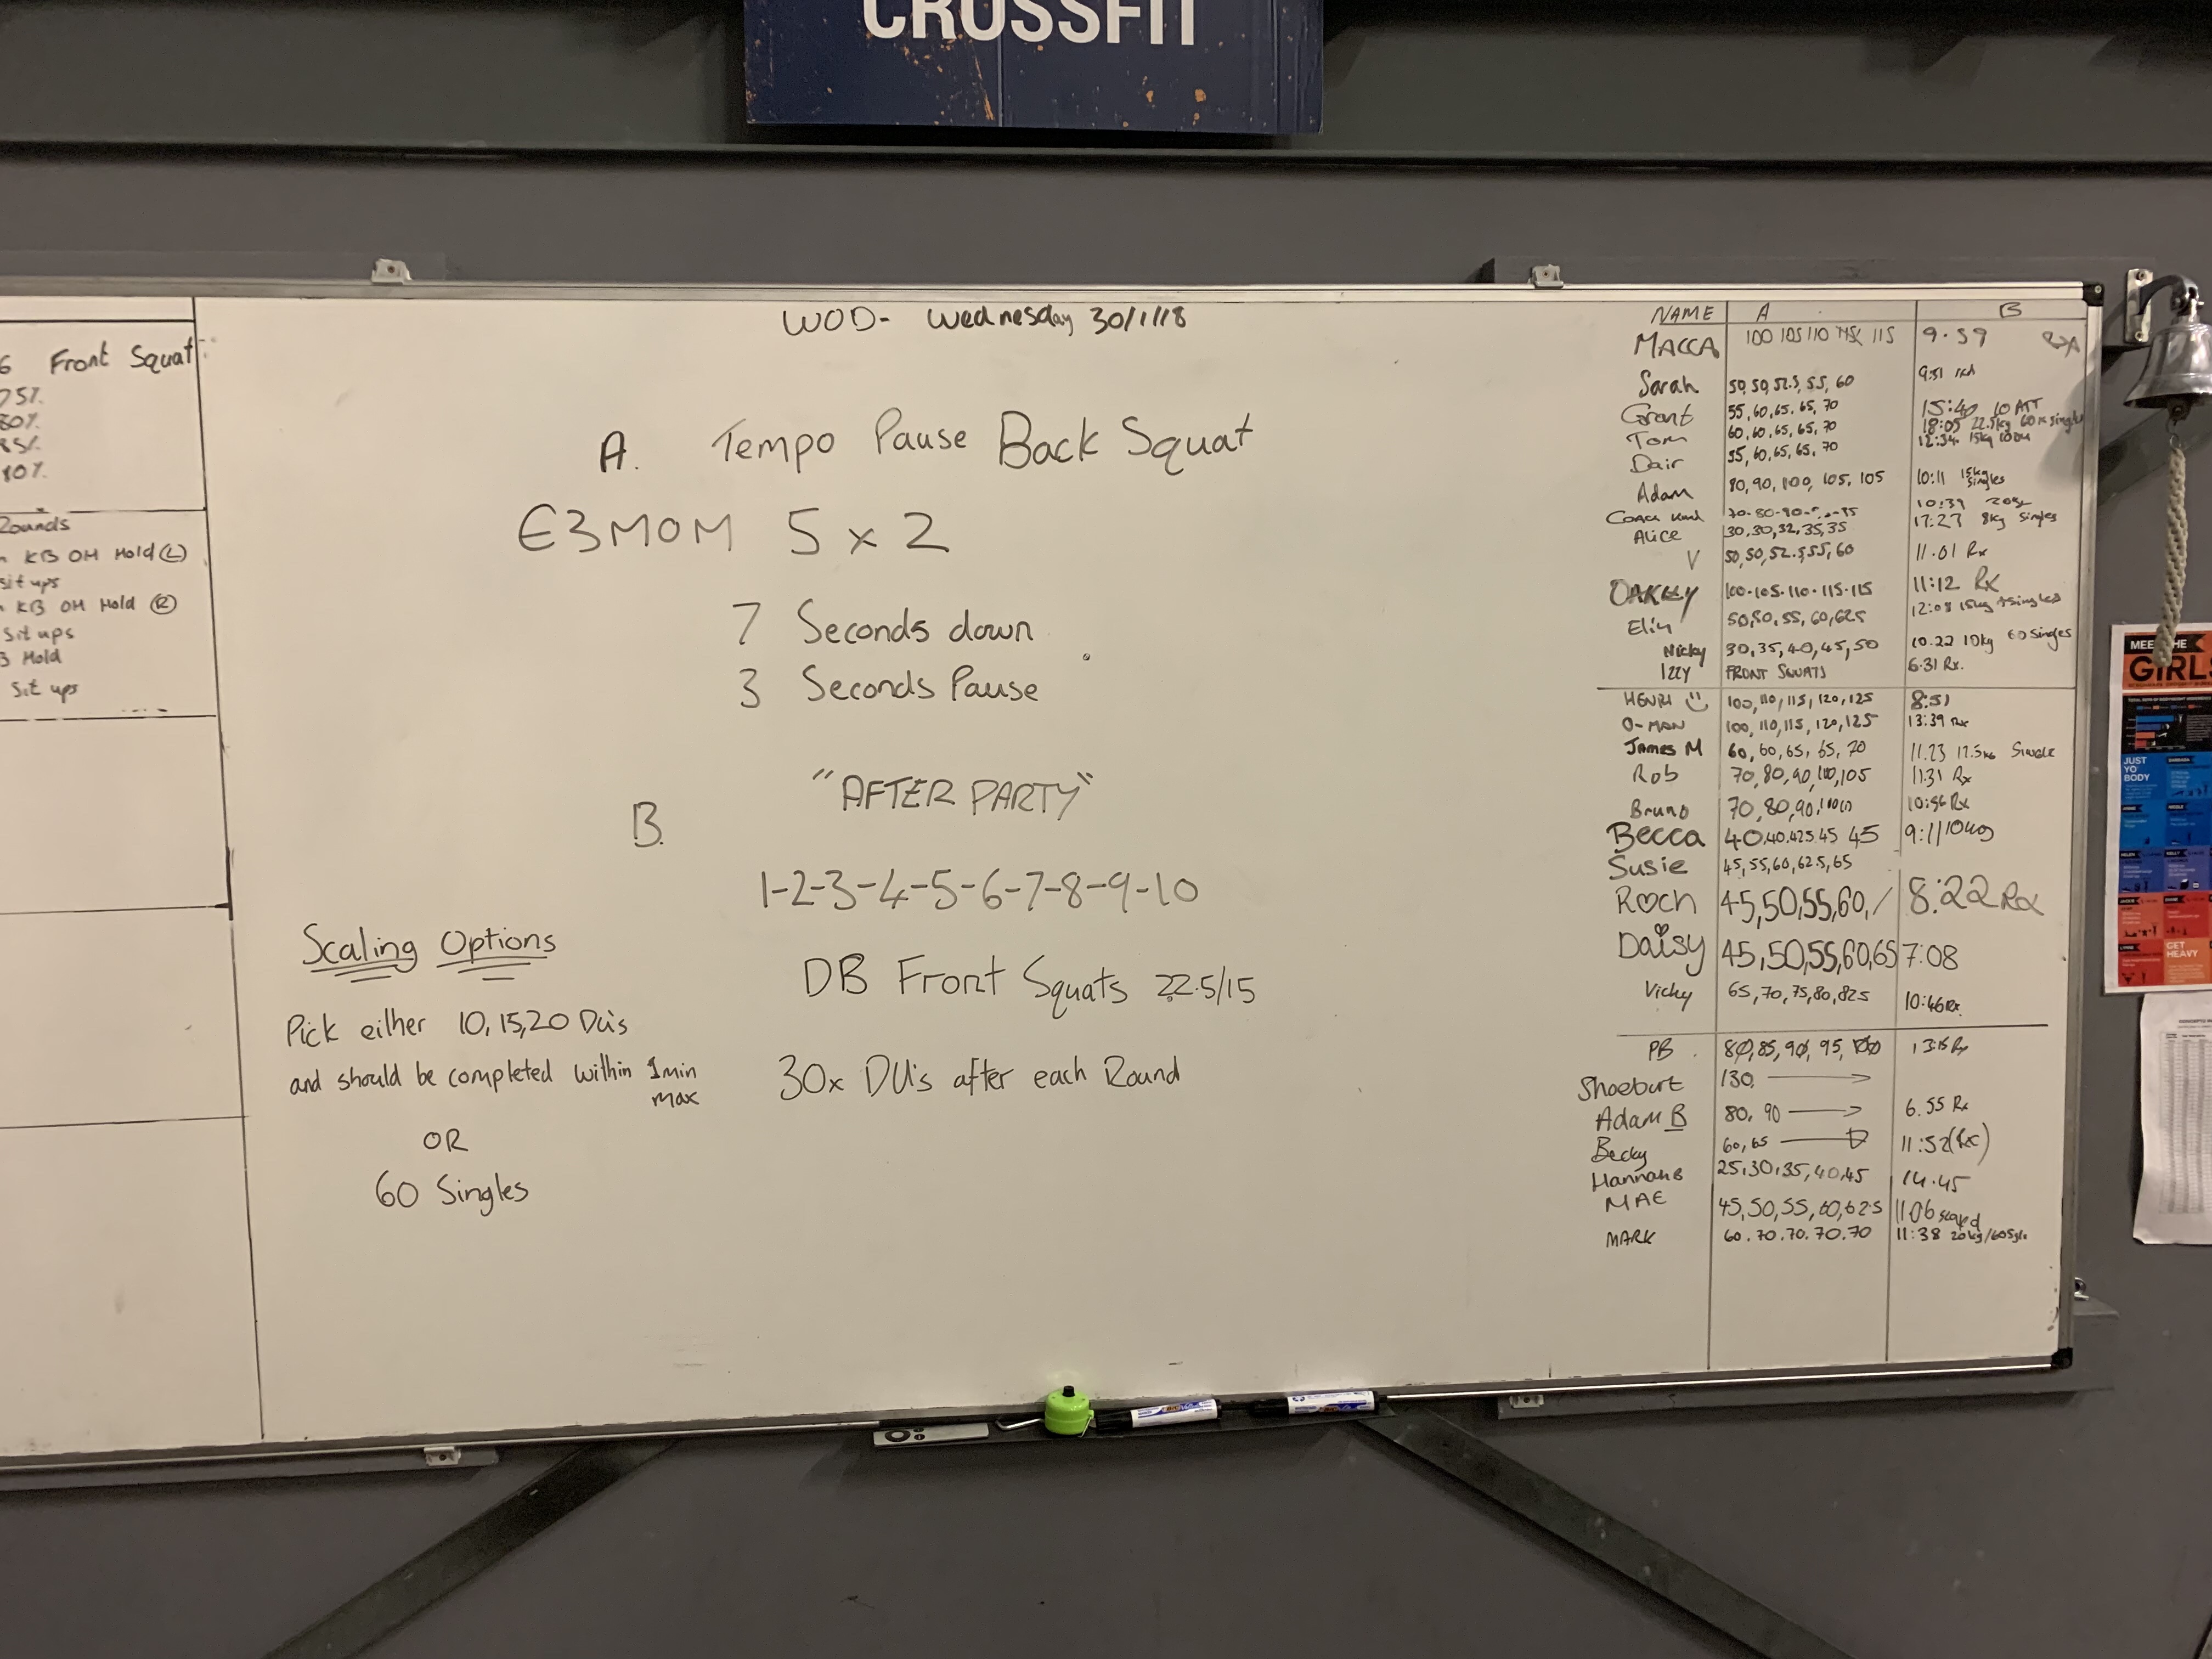 CROSSFIT
6 Front Squat
75%
80%
85%
80%
Rounds
KB OH Hold (L)
sit ups
KB OH Hold (R)
Sit ups
Hold
Sit ups
WOD - Wednesday 30/1/18
A. Tempo Pause Back Squat
E3MOM 5 x 2
7 Seconds down
3 Seconds Pause
B. "AFTER PARTY"
1-2-3-4-5-6-7-8-9-10
DB Front Squats 22.5/15
30x DU's after each Round
Scaling Options
Pick either 10, 15, 20 DU's
and should be completed within 1min
max
OR
60 Singles
NAME A B
MACCA 100 105 110 115 9.59
Sarah 50, 50, 52.5, 55, 60 9:51
Grant 55, 60, 65, 65, 70 15:40 10 ATT
Tom 60, 60, 65, 65, 70 18:05 22.5kg 60x singles
Dair 55, 60, 65, 65, 70 12:34 15kg
Adam 80, 90, 100, 105, 105 10:11 15kg Singles
Coach 10:39
Alice 30, 30, 32, 35, 35 17:27 8kg Singles
V 50, 50, 52.5, 55, 60 11.01 Rx
OAKLEY 100-105-110-115-115 11:12 Rx
Elin 50, 50, 55, 60, 62.5 12:08 15kg singles
Nicky 30, 35, 40, 45, 50 10.22 10kg 60 Singles
Izzy FRONT SQUATS 6.31 Rx.
HENRI 100, 110, 115, 120, 125 8:51
O-MAN 100, 110, 115, 120, 125 13:39 Rx
JAMES M 60, 60, 65, 65, 70 11.23 17.5kg Single
Rob 70, 80, 90, 100, 105 11:31 Rx
Bruno 70, 80, 90, 10:56 Rx
Becca 40, 40, 42.5 45 45 9:11 10kg
Susie 45, 55, 60, 62.5, 65
Roch 45, 50, 55, 60, / 8:22 Rx
Daisy 45, 50, 55, 60, 65 7:08
Vicky 65, 70, 75, 80, 82.5 10:46 Rx.
PB 80, 85, 90, 95, 100 13:15 Rx
Shoeburt 130, →
Adam B 80, 90 → 6.55 Rx
Becky 60, 65 → 11:52 (Rx)
Hannah B 25, 30, 35, 40, 45 14.45
MAE 45, 50, 55, 60, 62.5 11:06 scaled
MARK 60. 70. 70. 70. 70 11:38 20kg/60 Sgls
MEET THE
GIRLS
JUST
YO
BODY
GET
HEAVY